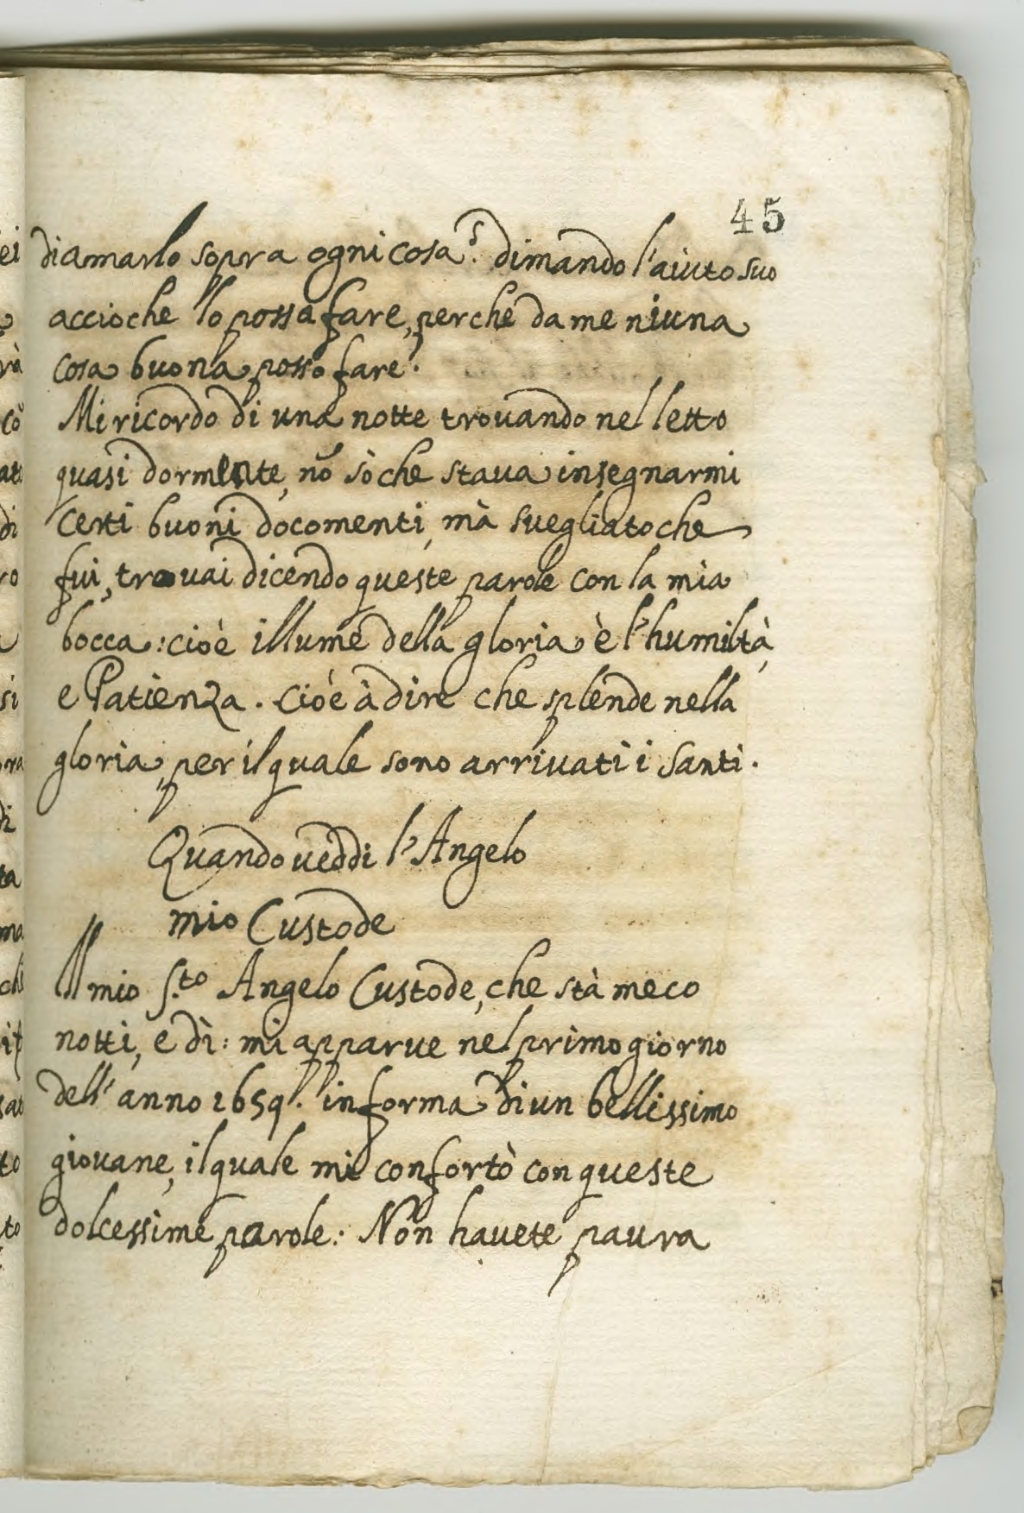 45
di amarlo sopra ogni cosa. dimando l'aiuto suo
accioche lo possa fare, perche da me niuna
cosa buona posso fare.
Mi ricordo di una notte trovando nel letto
quasi dormente, nõ sò che stava insegnarmi
certi buoni docomenti, mà svegliato che
fui, trovai dicendo queste parole con la mia
bocca: cioè il lume della gloria è l'humiltà,
e Patienza. Cioè à dire che splende nella
gloria, per il quale sono arrivati i Santi.
Quando veddi l'Angelo
mio Custode
Il mio S.to Angelo Custode, che stà meco
notti, e dì: mi apparve nel primo giorno
dell'anno 1659. in forma di un bellissimo
giovane, il quale mi confortò con queste
dolcessime parole: Non havete paura